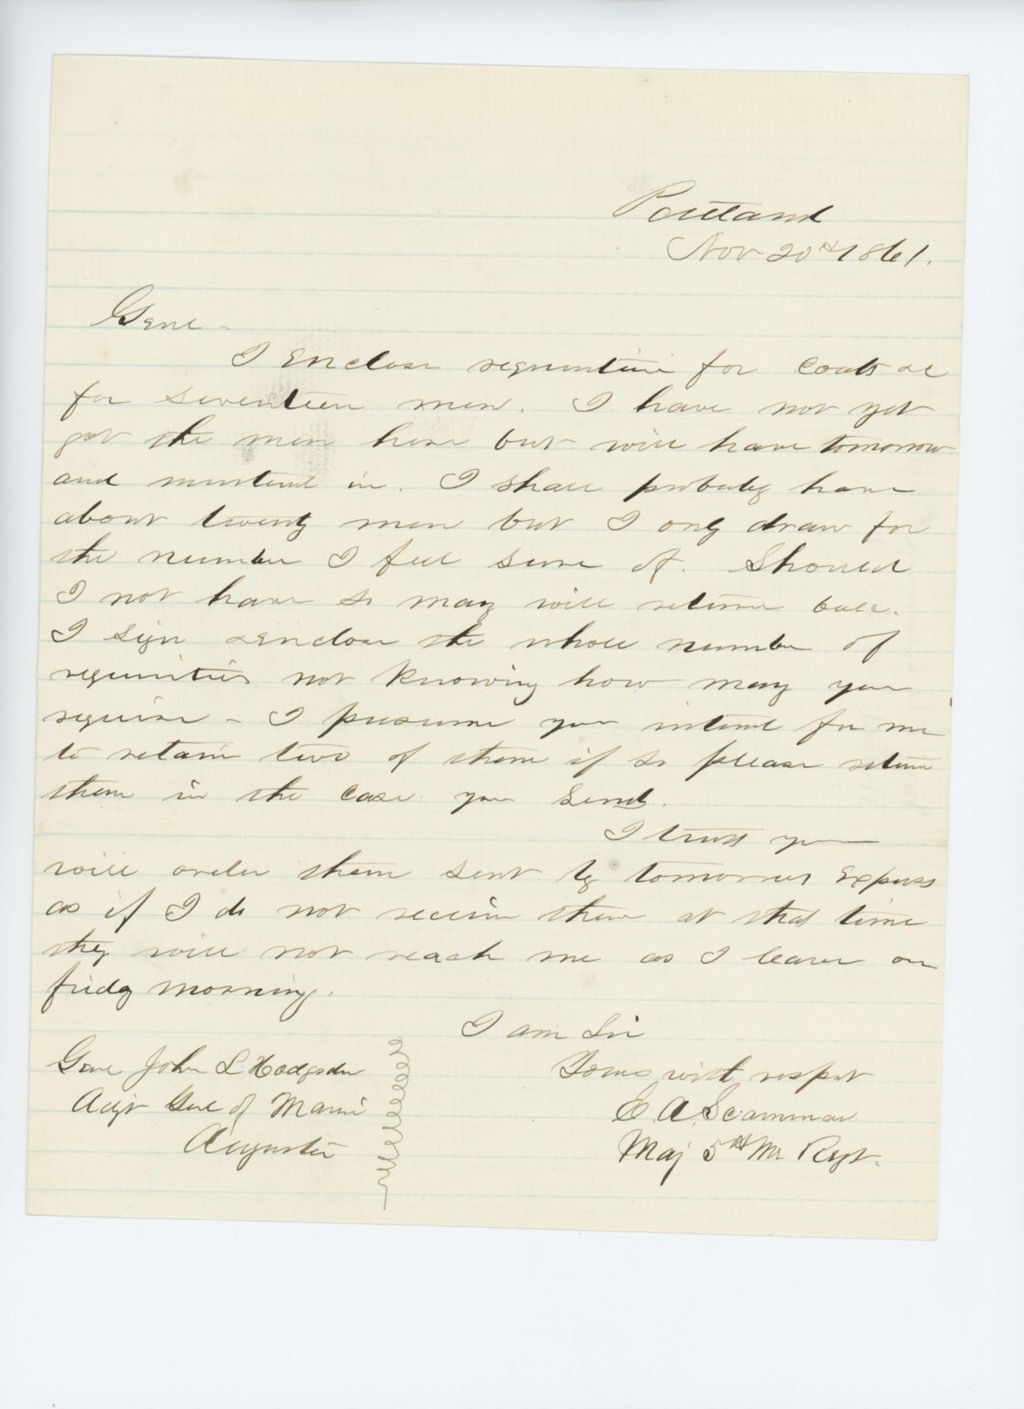 Portland
Nov 20th 1861.
Genl -
I enclose requisition for Coats &c
for seventeen men. I have not yet
got the men here but will have tomorrow
and mustered in. I shall probably have
about twenty men but I only draw for
the number I feel sure of. Should
I not have so many will return balc.
I sign & enclose the whole number of
requisitions not knowing how many you
require - I presume you intend for me
to retain two of them if so please return
them in the case you send.
I trust you
will order them sent by tomorrows Express
as if I do not receive them at that time
they will not reach me as I leave on
friday morning.
I am Sir
Yours with respect
E. A. Scamman
Maj 5th Me Regt.
Genl John L Hodsdon
Adjt Genl of Maine
Augusta